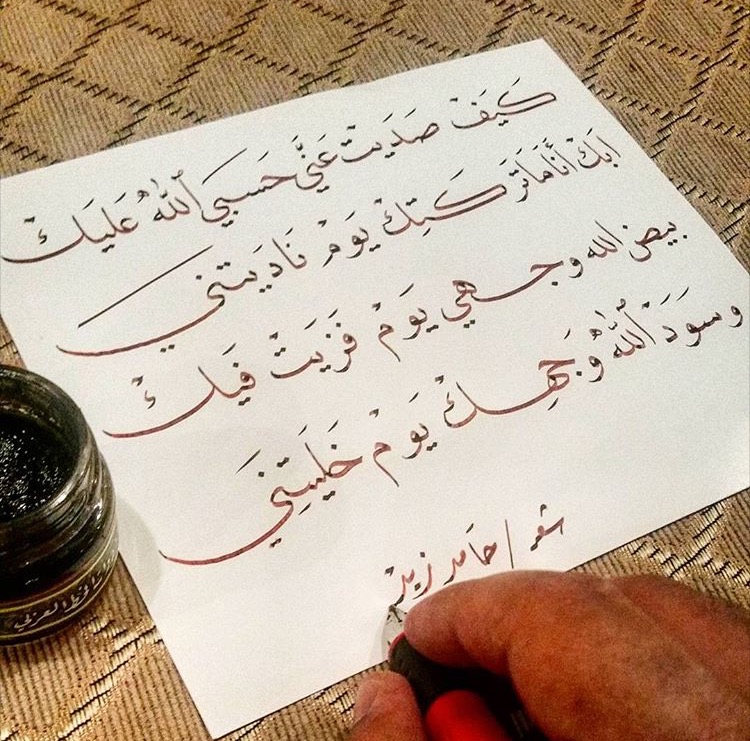 كَيَفْ صَدَيَتْ عَنَّي حَسبَي اللّٰه عَليَكْ
ابَكْ أنَا مَا تَركَتِكْ يَوَمْ نَادَيَتني
بيض الله وجهي يَوَمْ فَزيَتْ فيَكْ
وسوَدَ اللّٰه وُجَهِكْ يَوَمْ خَليَتِنَي
شعر / حَامد زيد